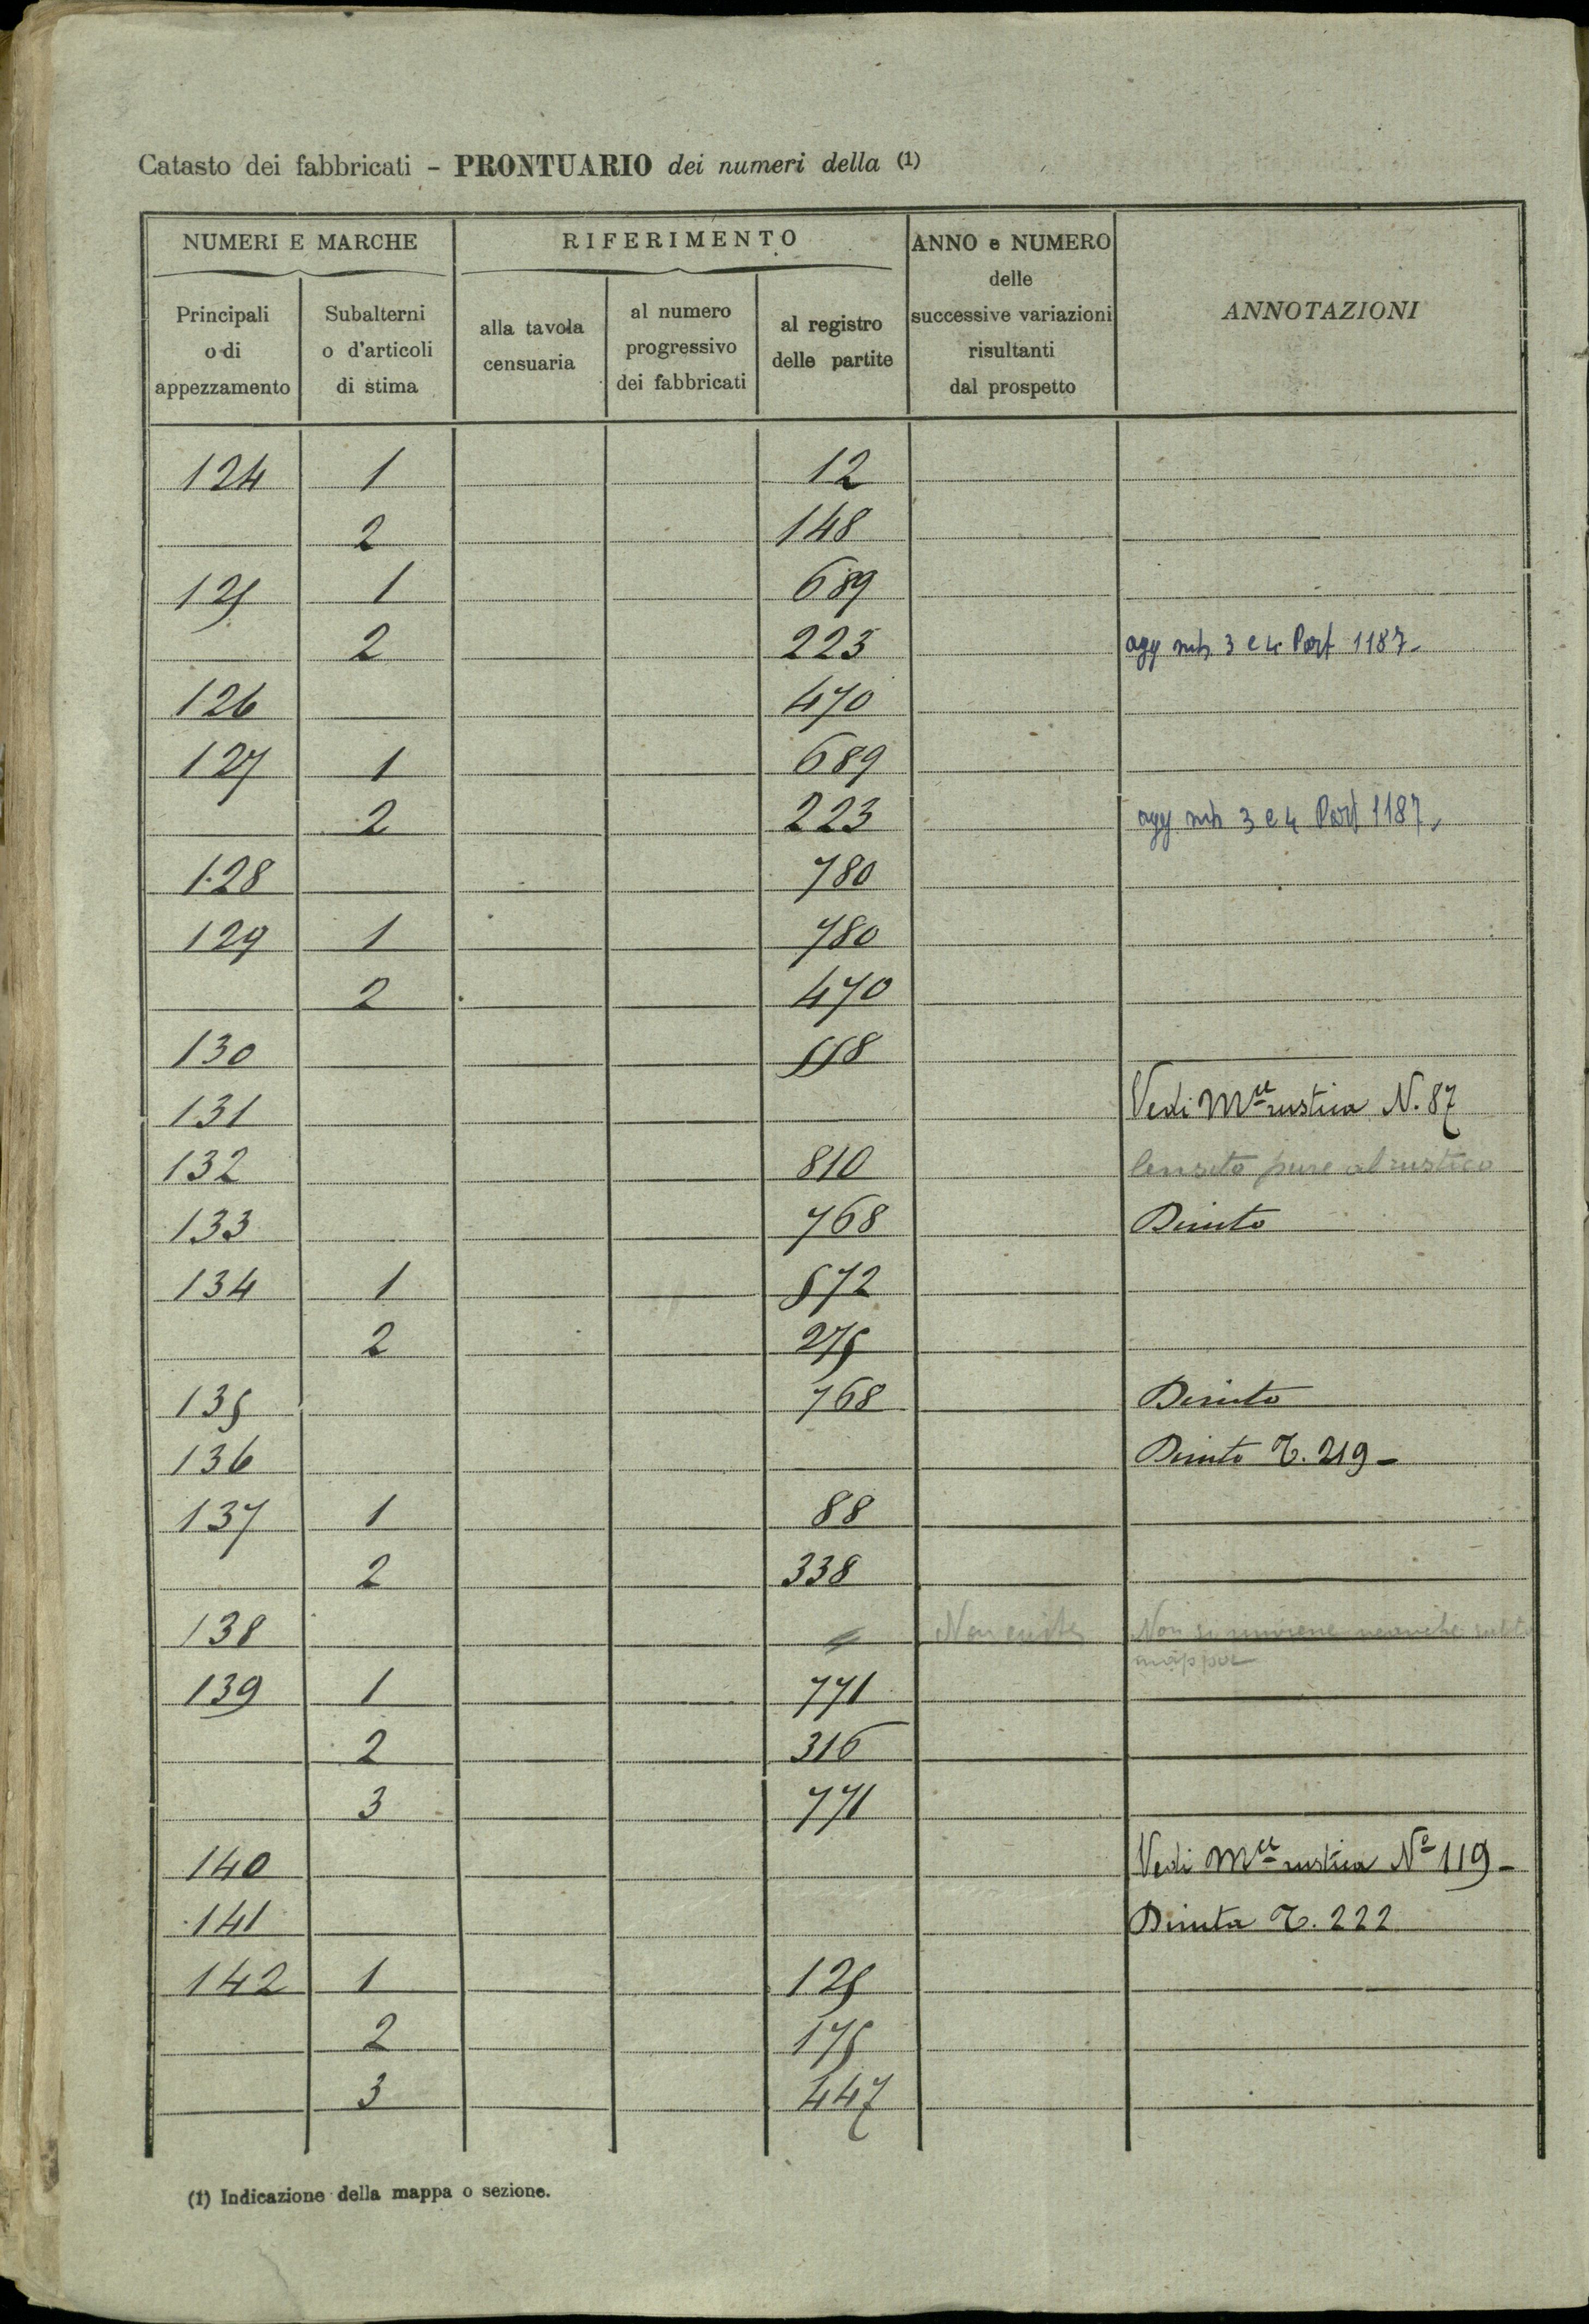 Catasto dei fabbricati - PRONTUARIO dei numeri della (1)
NUMERI E MARCHE RIFERIMENTO ANNO e NUMERO delle successive variazioni risultanti dal prospetto ANNOTAZIONI
Principali o di appezzamento Subalterni o d'articoli di stima alla tavola censuaria al numero progressivo dei fabbricati al registro delle partite
124 1 12
2 148
125 1 689
2 223 agg 3 e 4 Part 1187-
126 470
127 1 689
2 223 agg 3 e 4 Part 1187
128 780
129 1 780
2 470
130 558
131 Vedi Mce rustica N. 87
132 810 Censito pure al rustico
133 768 Diruto
134 1 572
2 275
135 768 Diruto
136 Diruto T. 219-
137 1 88
2 338
138 Non esiste Non si rinviene neanche sulla
mappa
139 1 771
2 316
3 771
140 Vedi Mce rustica No 119-
141 Diruta T. 222
142 1 125
2 175
3 447
(1) Indicazione della mappa o sezione.